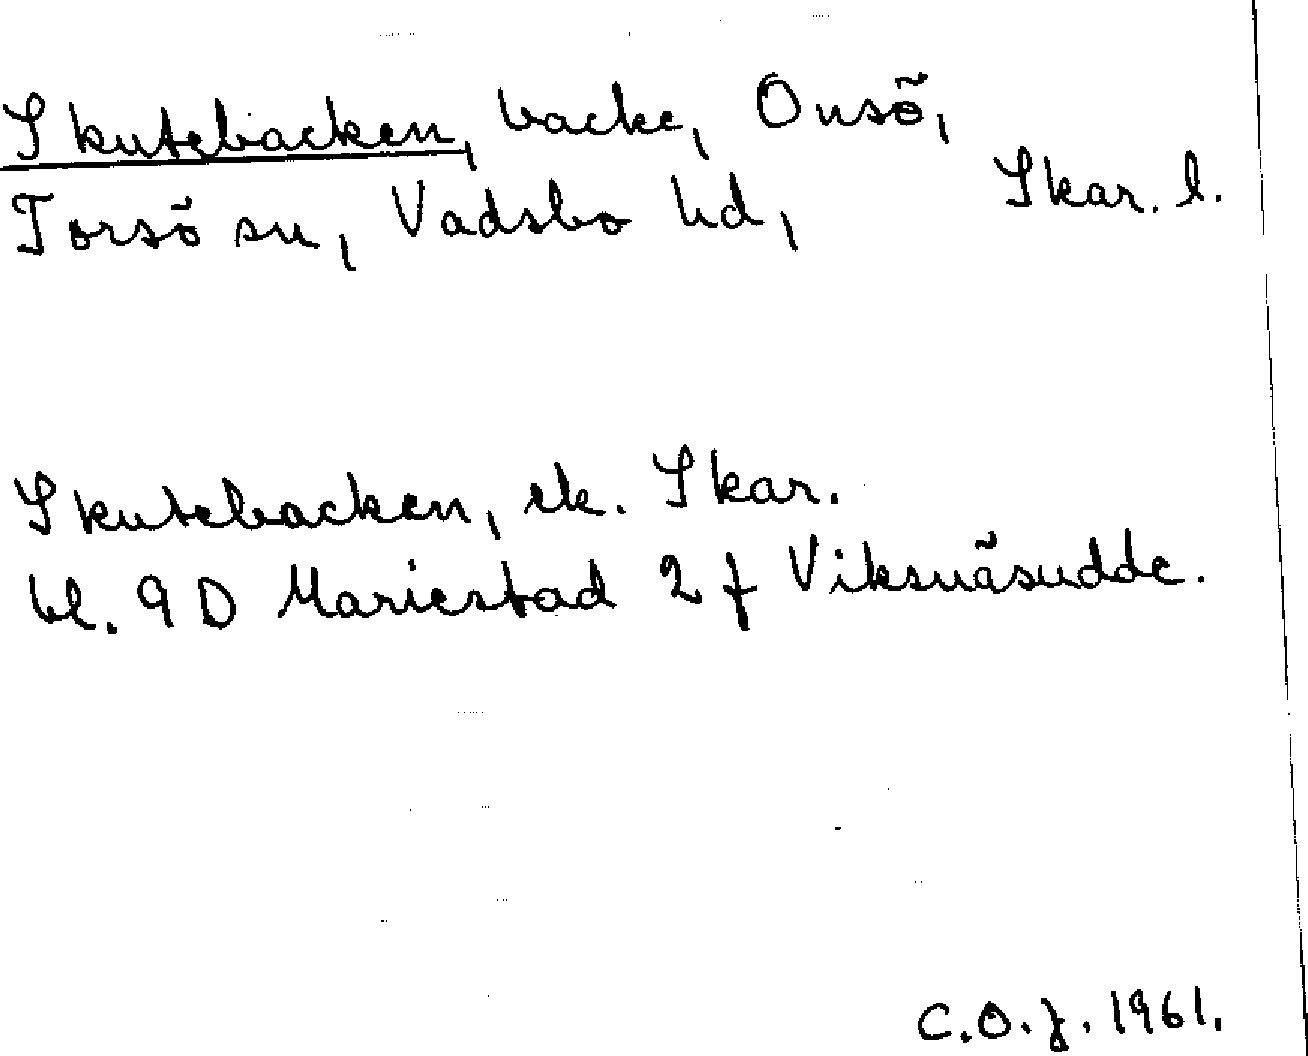 Skutebacken, backe, Onsö,
Torsö sn, Vadsbo hd, Skar. l.
Skutebacken, ek. Skar.
bl. 9 D Mariestad 2 f Viksnäsudde.
C.O.J. 1961.